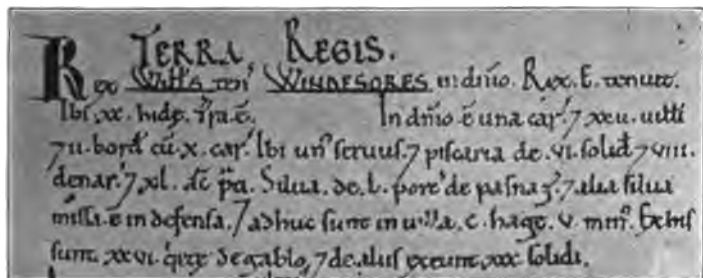 TERRA REGIS.
Rex Witts ten' WINDESORES in dnio. Rex. E. tenuit.
Ibi xx. hidę. Tra. ē. In dnio ē una car'. ⁊ xxii. uitti
⁊ ii. bord' cū. x. car'. Ibi un' seruus. ⁊ piscaria de. vi. solid' ⁊ viii.
denar'. ⁊ xl. ac' p̄a. Silua. de. l. porc' de pasnag'. ⁊ alia silua
missa. ē in defensa. ⁊ adhuc sunt in uilla. c. hagę. v. min'. Ex his
sunt. xxvi. q'etę de gablo, ⁊ de aliis exeunt. xxx. solidi.